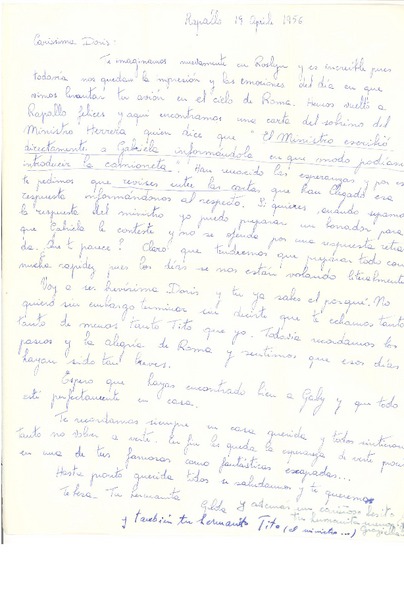 Rapallo 19 Aprile 1956
Carissima Doris:
Te imaginamos nuevamente en Roslyn y es increíble pues
todavia nos quedan la impresión y las emociones del día en que
vimos levantar tu avión en el cielo de Roma. Hemos vuelto a
Rapallo felices y aqui encontramos una carta del sobrino del
Ministro Herrera quien dice que "El Ministro escribió
directamente a Gabriela informándola en que modo podiamos
introducir la camioneta." Han renacido las esperanzas y por eso
te pedimos que revises entre las cartas, que han llegado esa
respuesta informandonos al respecto. Si quieres, cuando sepamos
la respuesta del ministro yo puedo preparar un borrador para
que Gabriela le conteste y no se ofenda por una respuesta retra
da. Que te parece? Claro que tendremos que preparar todo con
mucha rapidez pues los dias se nos están volando literalmente
Voy a ser brevisima Doris y tu ya sabes el porqué. No
quiero sin embargo terminar sin decirte que te echamos tanto
tanto de menos tanto Tito que yo. Todavia recordamos los
paseos y la alegria de Roma y sentimos que esos dias
hayan sido tan breves.
Espero que hayas encontrado bien a Gaby y que todo
esté perfectamente en casa.
Te recordamos siempre en casa querida y todos sintieron
tanto no volver a verte. En fin les queda la esperanza de verte pronto
en una de tus famosas como fantásticas escapadas...
Hasta pronto querida todos te saludamos y te queremos
Te besa. Tu hermanita
Gilda y además un cariñoso besito
tu hermanita
y también tu hermanito Tito (el ministro...)